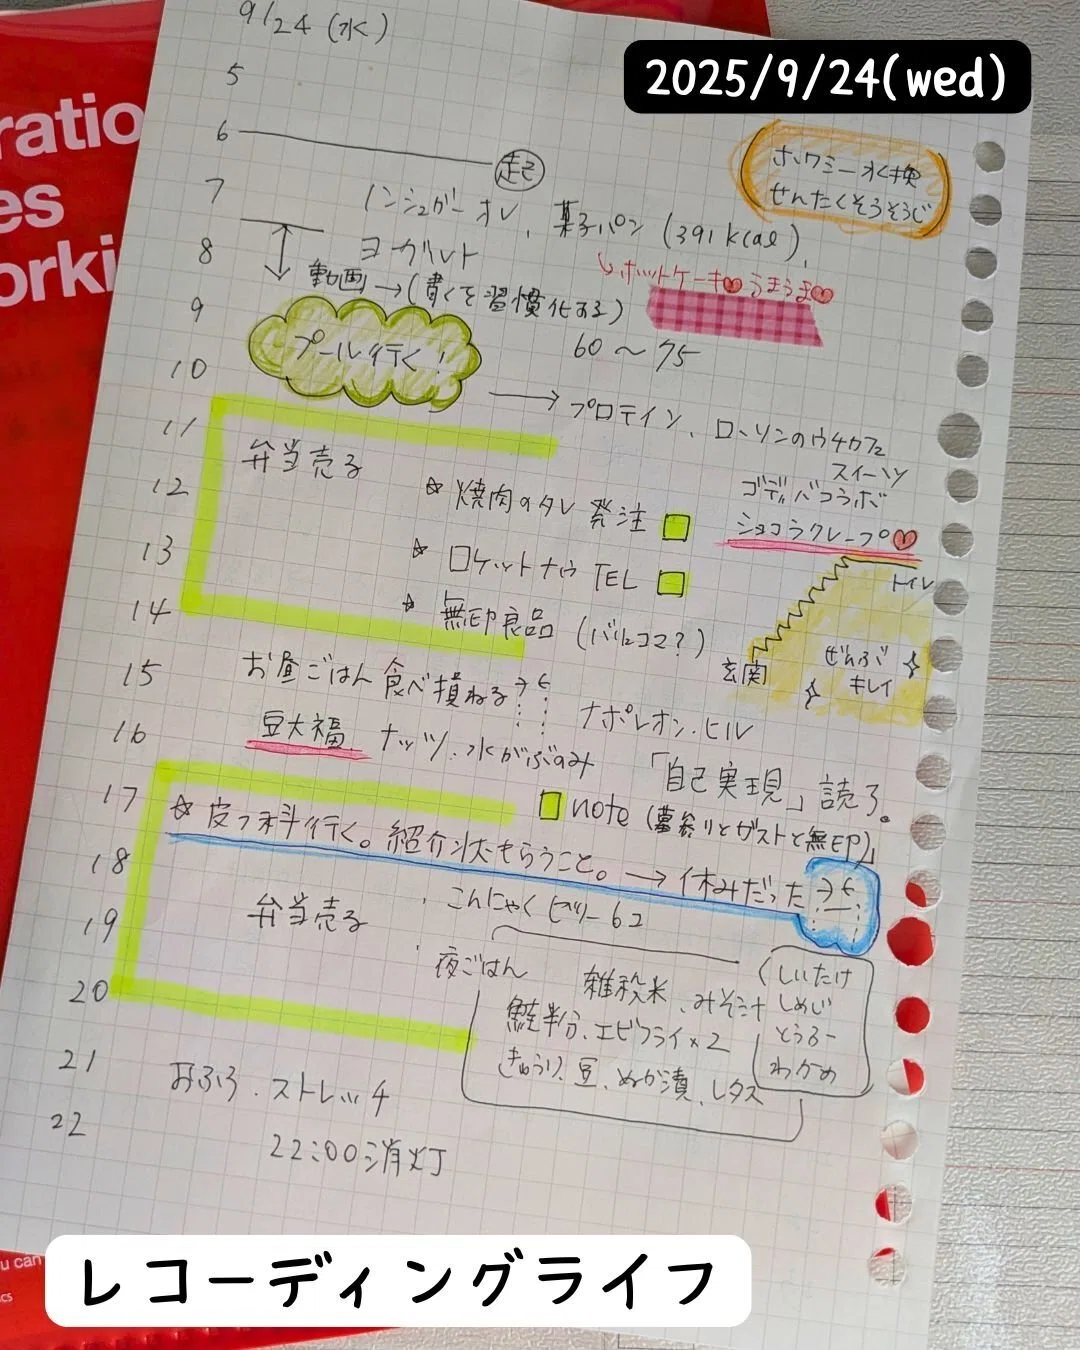 9/24(水)
2025/9/24(wed)
ration
es
orki
5
6
起
ホワミー水換
せんたくそうそうじ
7
ノンシュガーオレ、菓子パン(391kcal)、
8
ヨーグルト
↳ホットケーキ♡うまうま♡
動画→(書くを習慣化する)
9
プール行く!
60〜75
10
→プロテイン、ローソンのウチカフェ
スイーツ
ゴディバコラボ
ショコラクレープ♡
11
弁当売る
12
☆焼肉のタレ 発注
13
☆ロケットナウ TEL
トイレ
14
☆無印良品(バルコマ?)
玄関
ぜんぶ
キレイ
15
お昼ごはん食べ損ねる
16
豆大福 ナッツ.水がぶのみ
ナポレオン.ヒル
「自己実現」読了。
17
note(墓参りとガストと無印)
☆皮フ科行く。紹介状もらうこと。→休みだった
18
こんにゃくゼリー6コ
19
弁当売る
夜ごはん
雑穀米、みそ汁
しいたけ
しめじ
とうふー
わかめ
20
鮭半分、エビフライ×2
きゅうり、豆、ぬか漬、レタス
21
おふろ.ストレッチ
22
22:00消灯
u can
cs
レコーディングライフ